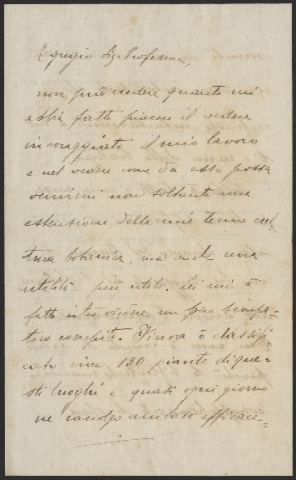 Egregio Sig. Professore,
non può credere quanto mi
abbia fatto piacere il vedere
incoraggiato il mio lavoro
e nel vedere come da esso possa
venirmi non soltanto una
estensione della mia tenue cul-
tura botanica, ma anche una
utilità più
fatto un fine simpa-
tico compito. Finora ò classifi-
cato circa 150 piante di que-
sti luoghi e quasi ogni giorno
ne raccolgo aiutato efficace-